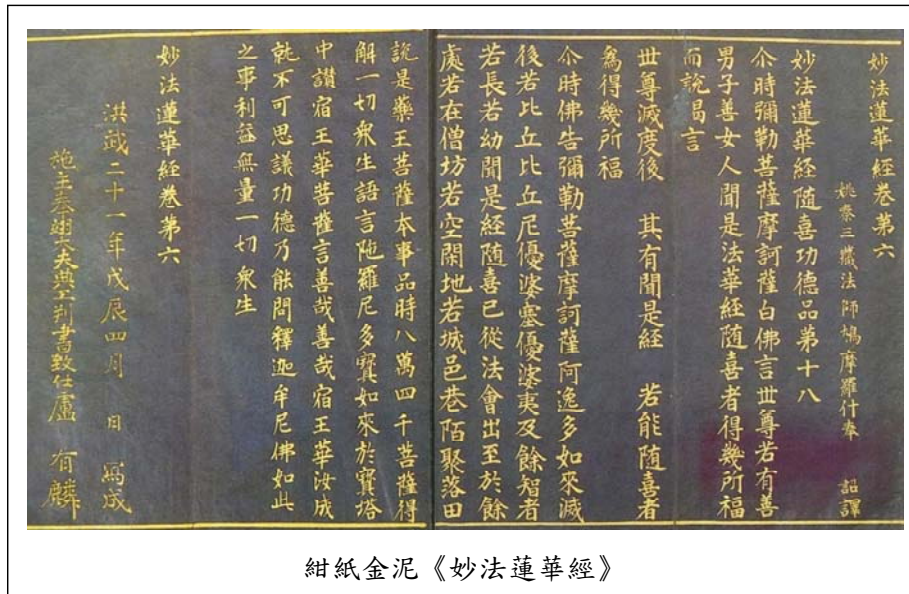 妙法蓮華經卷第六
姚秦三藏法師鳩摩羅什奉 詔譯
妙法蓮華經隨喜功德品第十八
尒時彌勒菩薩摩訶薩白佛言世尊若有善
男子善女人聞是法華經隨喜者得幾所福
而說偈言
世尊滅度後 其有聞是經 若能隨喜者
為得幾所福
尒時佛告彌勒菩薩摩訶薩阿逸多如來滅
後若比丘比丘尼優婆塞優婆夷及餘智者
若長若幼聞是經隨喜已從法會出至於餘
處若在僧坊若空閑地若城邑巷陌聚落田
說是藥王菩薩本事品時八萬四千菩薩得
解一切眾生語言陁羅尼多寶如來於寶塔
中讚宿王華菩薩言善哉善哉宿王華汝成
就不可思議功德乃能問釋迦牟尼佛如此
之事利益無量一切眾生
妙法蓮華經卷第六
洪武二十一年戊辰四月 日 寫成
施主奉翊大夫典工判書致仕盧 有麟
紺紙金泥《妙法蓮華經》